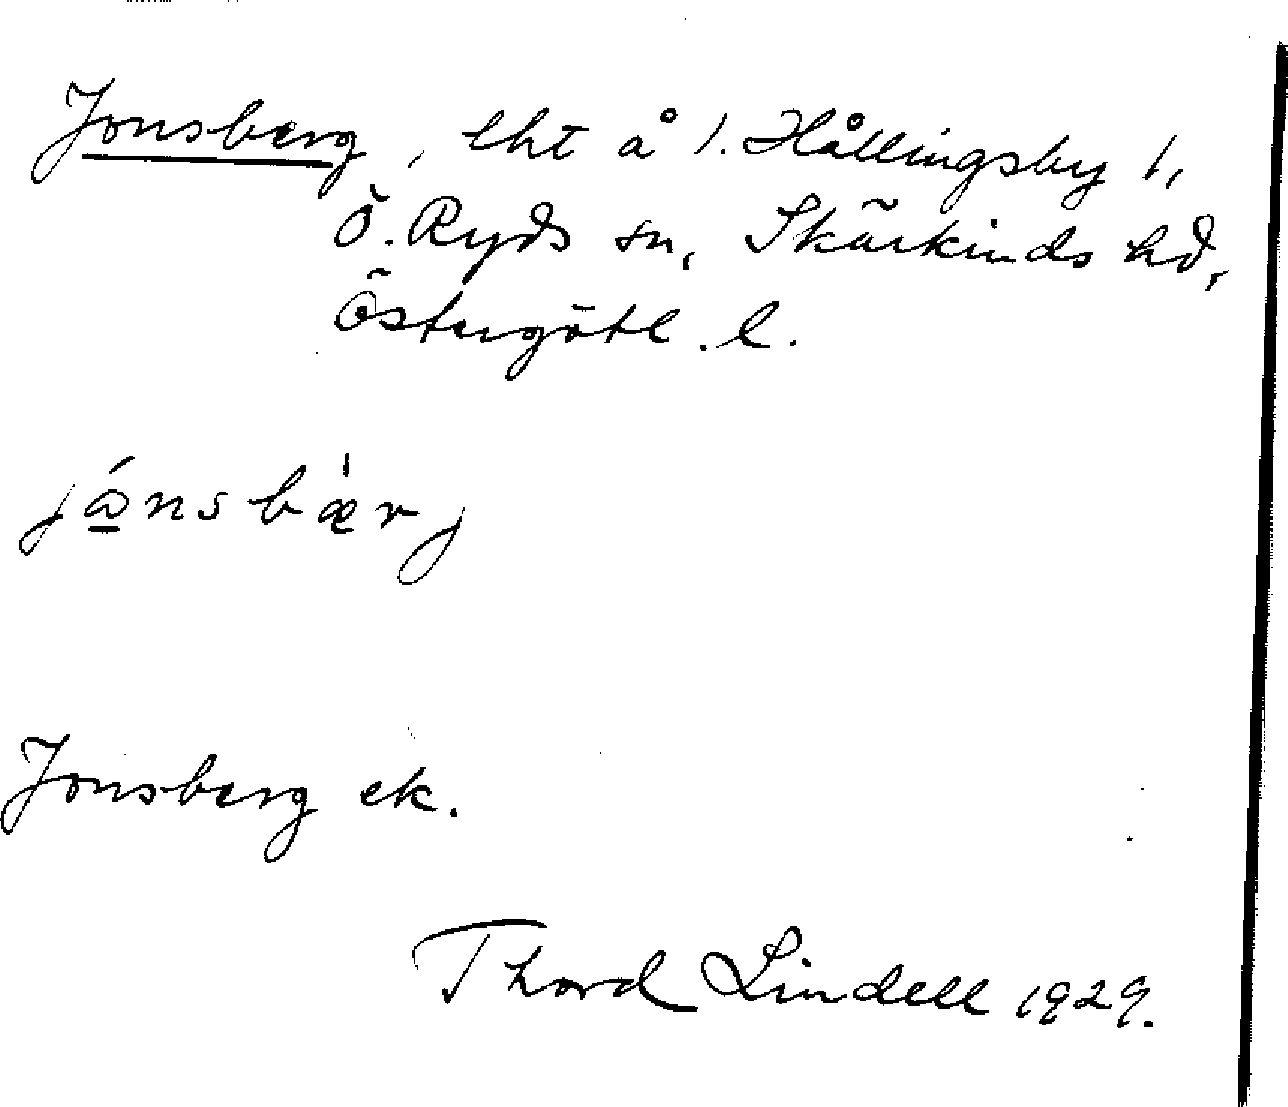 Jonsberg, lht å 1. Hållingsby 1,
Ö. Ryds sn, Skärkinds hd,
Östergötl. l.
jónsbærj
Jonsberg ek.
Thord Lindell 1929.